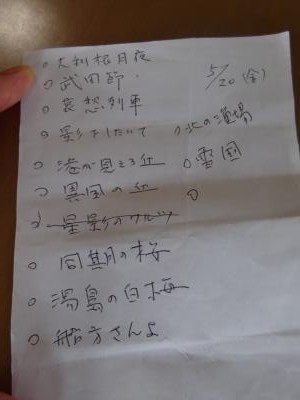 ○ 大利根月夜
○ 武田節
5/20 (金)
○ 哀想列車
○ 影をしたいて
○ 北の漁場
○ 港が見える丘
○ 雪国
○ 異国の丘
○
○ 星影のワルツ
○ 同期の桜
○ 湯島の白梅
○ 船方さんよ